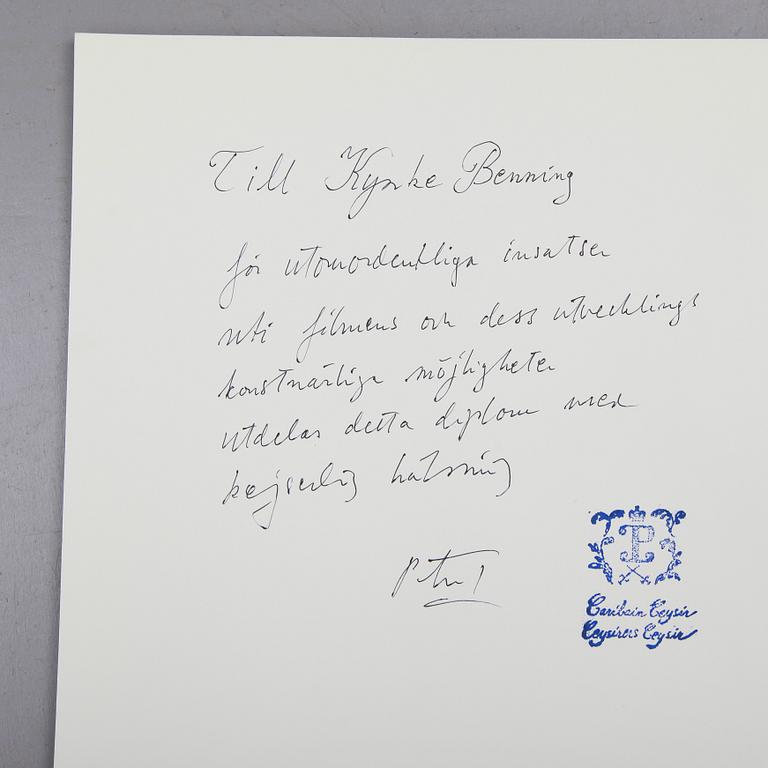 Till Kynke Benning
för utomordentliga insatser
uti filmens och dess utvecklings
konstnärliga möjligheter
utdelas detta diplom med
kejserlig hälsning
Petrus I
P
Caribain Ceysir
Ceysirers Ceysir